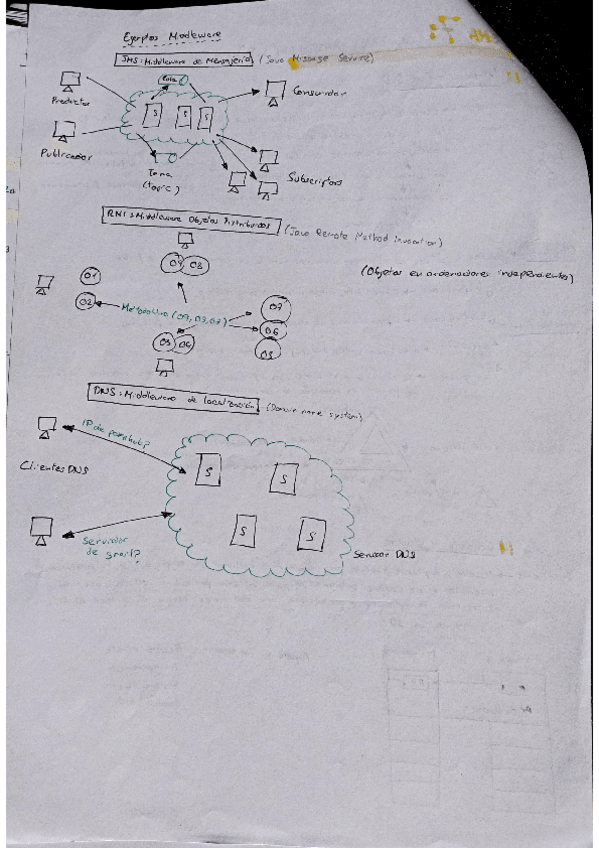 Ejemplos Middleware
JMS: Middleware de Mensajería (Java Message Service)
Cola
Productor
S S S
Consumidor
Publicador
Tema
(topic)
Subscriptores
RMI: Middleware Objetos Distribuidos (Java Remote Method Invocation)
(Objetos en ordenadores independientes)
O1
O2
O7
O6
DNS: Middleware de localización (Domain name system)
IP de pornhub?
Clientes DNS
S S
S S
Servidor
de gmail?
Servidor DNS